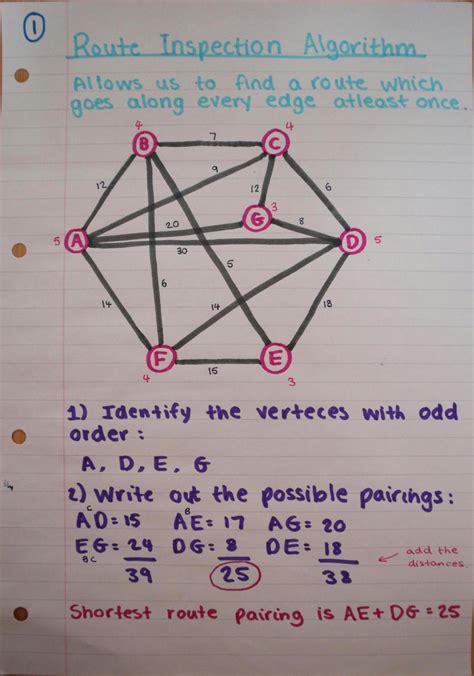 1
Route Inspection Algorithm
Allows us to find a route which
goes along every edge atleast once.
4 B 7 C 4
12 9 12 6
G 3
5 A 20 8 D 5
30
5
14 6 14 18
F 15 E
4 3
1) Identify the verteces with odd
order:
A, D, E, G
2) Write out the possible pairings:
C B
AD = 15 AE = 17 AG = 20
EG = 24 DG = 8 DE = 18
BC
39 25 38
add the
distances.
Shortest route pairing is AE + DG = 25